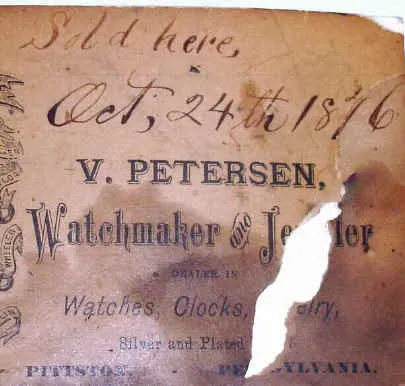 Sold here,
Oct, 24th 1876
V. PETERSEN,
Watchmaker AND Je ler
DEALER IN
Watches, Clocks, elry,
Silver and Plated
PITTSTON, - PE YLVANIA.